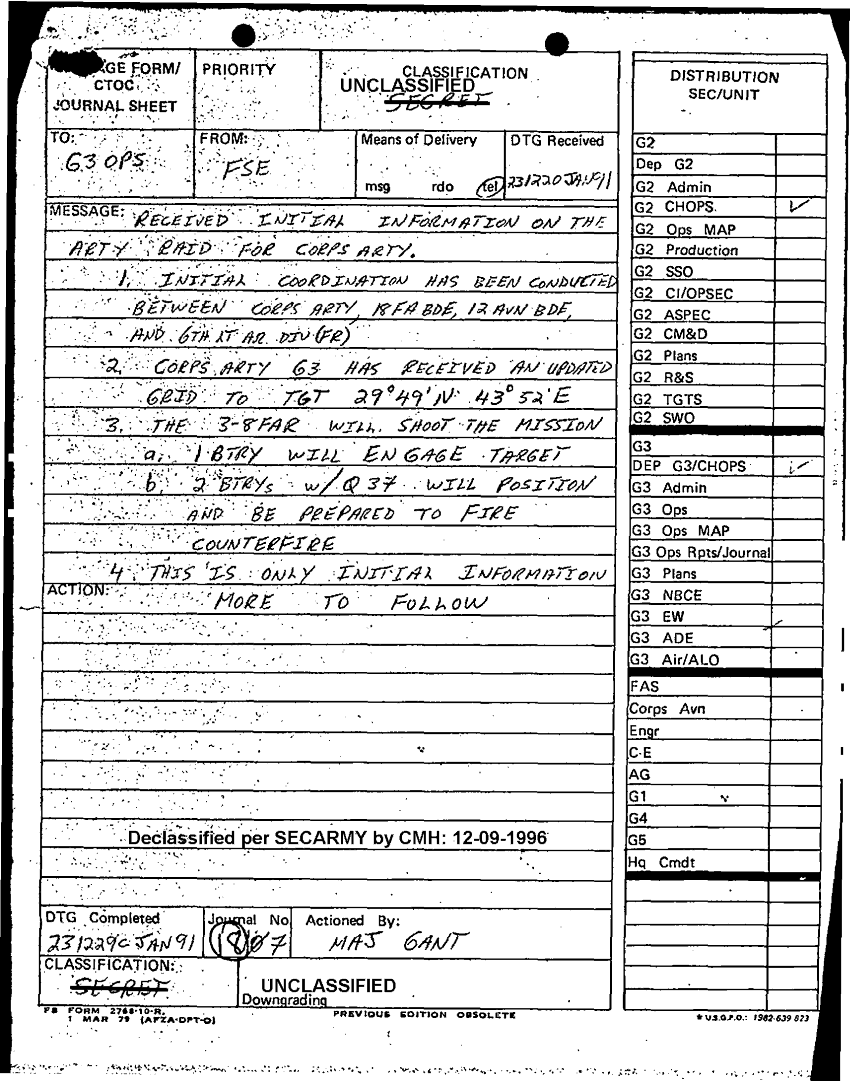 GE FORM/
CTOC
JOURNAL SHEET
PRIORITY
CLASSIFICATION
UNCLASSIFIED
SECRET
TO:
G3 OPS
FROM:
FSE
Means of Delivery
msg rdo tel
DTG Received
231220 JAN91
MESSAGE: RECEIVED INITIAL INFORMATION ON THE
ARTY RAID FOR CORPS ARTY.
1. INITIAL COORDINATION HAS BEEN CONDUCTED
BETWEEN CORPS ARTY, 18 FA BDE, 12 AVN BDE,
AND 6TH LT AR DIV (FR)
2. CORPS ARTY G3 HAS RECEIVED AN UPDATED
GRID TO TGT 29°49'N 43°52'E
3. THE 3-8 FAR WILL SHOOT THE MISSION
a. 1 BTRY WILL ENGAGE TARGET
b. 2 BTRYs w/ Q37 WILL POSITION
AND BE PREPARED TO FIRE
COUNTERFIRE
4. THIS IS ONLY INITIAL INFORMATION
ACTION:
MORE TO FOLLOW
Declassified per SECARMY by CMH: 12-09-1996
DTG Completed
231229C JAN 91
Journal No
18 7
Actioned By:
MAJ GANT
CLASSIFICATION:
SECRET
UNCLASSIFIED
Downgrading
FB FORM 2768-10-R,
1 MAR 79 (AFZA-DPT-O)
PREVIOUS EDITION OBSOLETE
DISTRIBUTION
SEC/UNIT
G2
Dep G2
G2 Admin
G2 CHOPS
G2 Ops MAP
G2 Production
G2 SSO
G2 CI/OPSEC
G2 ASPEC
G2 CM&D
G2 Plans
G2 R&S
G2 TGTS
G2 SWO
G3
DEP G3/CHOPS
G3 Admin
G3 Ops
G3 Ops MAP
G3 Ops Rpts/Journal
G3 Plans
G3 NBCE
G3 EW
G3 ADE
G3 Air/ALO
FAS
Corps Avn
Engr
C-E
AG
G1
G4
G5
Hq Cmdt
* U.S.G.P.O.: 1982-639-823